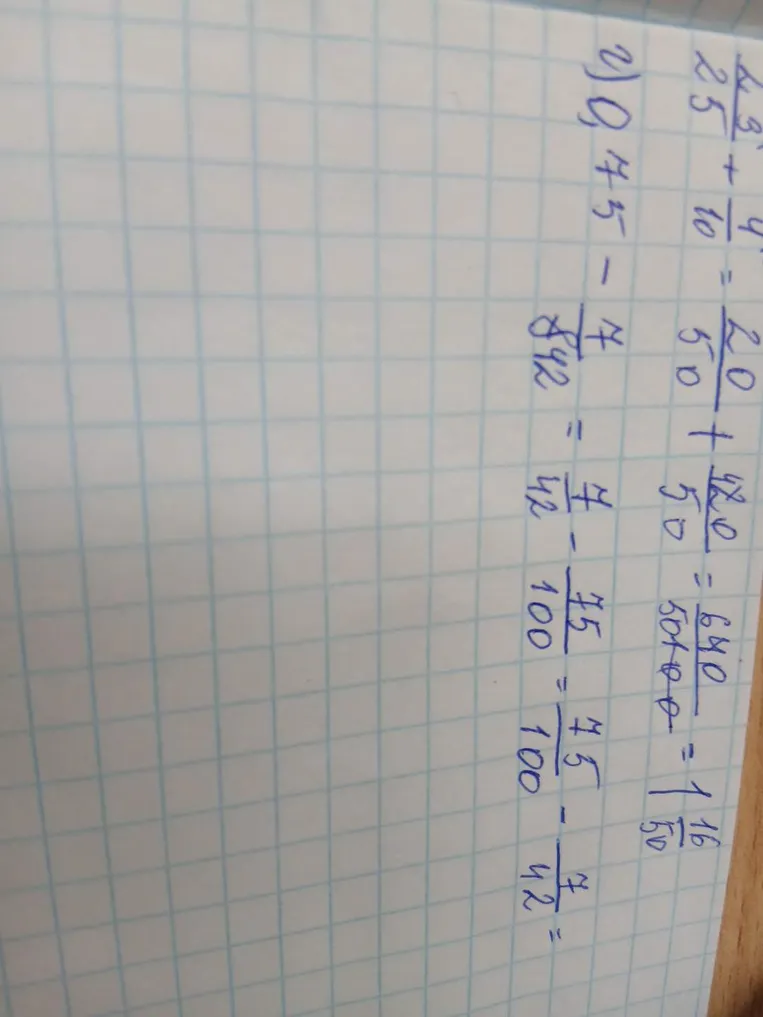 23/25 + 4/10 = 20/50 + 420/50 = 640/50 = 1 16/50
г) 0,75 - 7/42 = 7/42 - 75/100 = 75/100 - 7/42 =